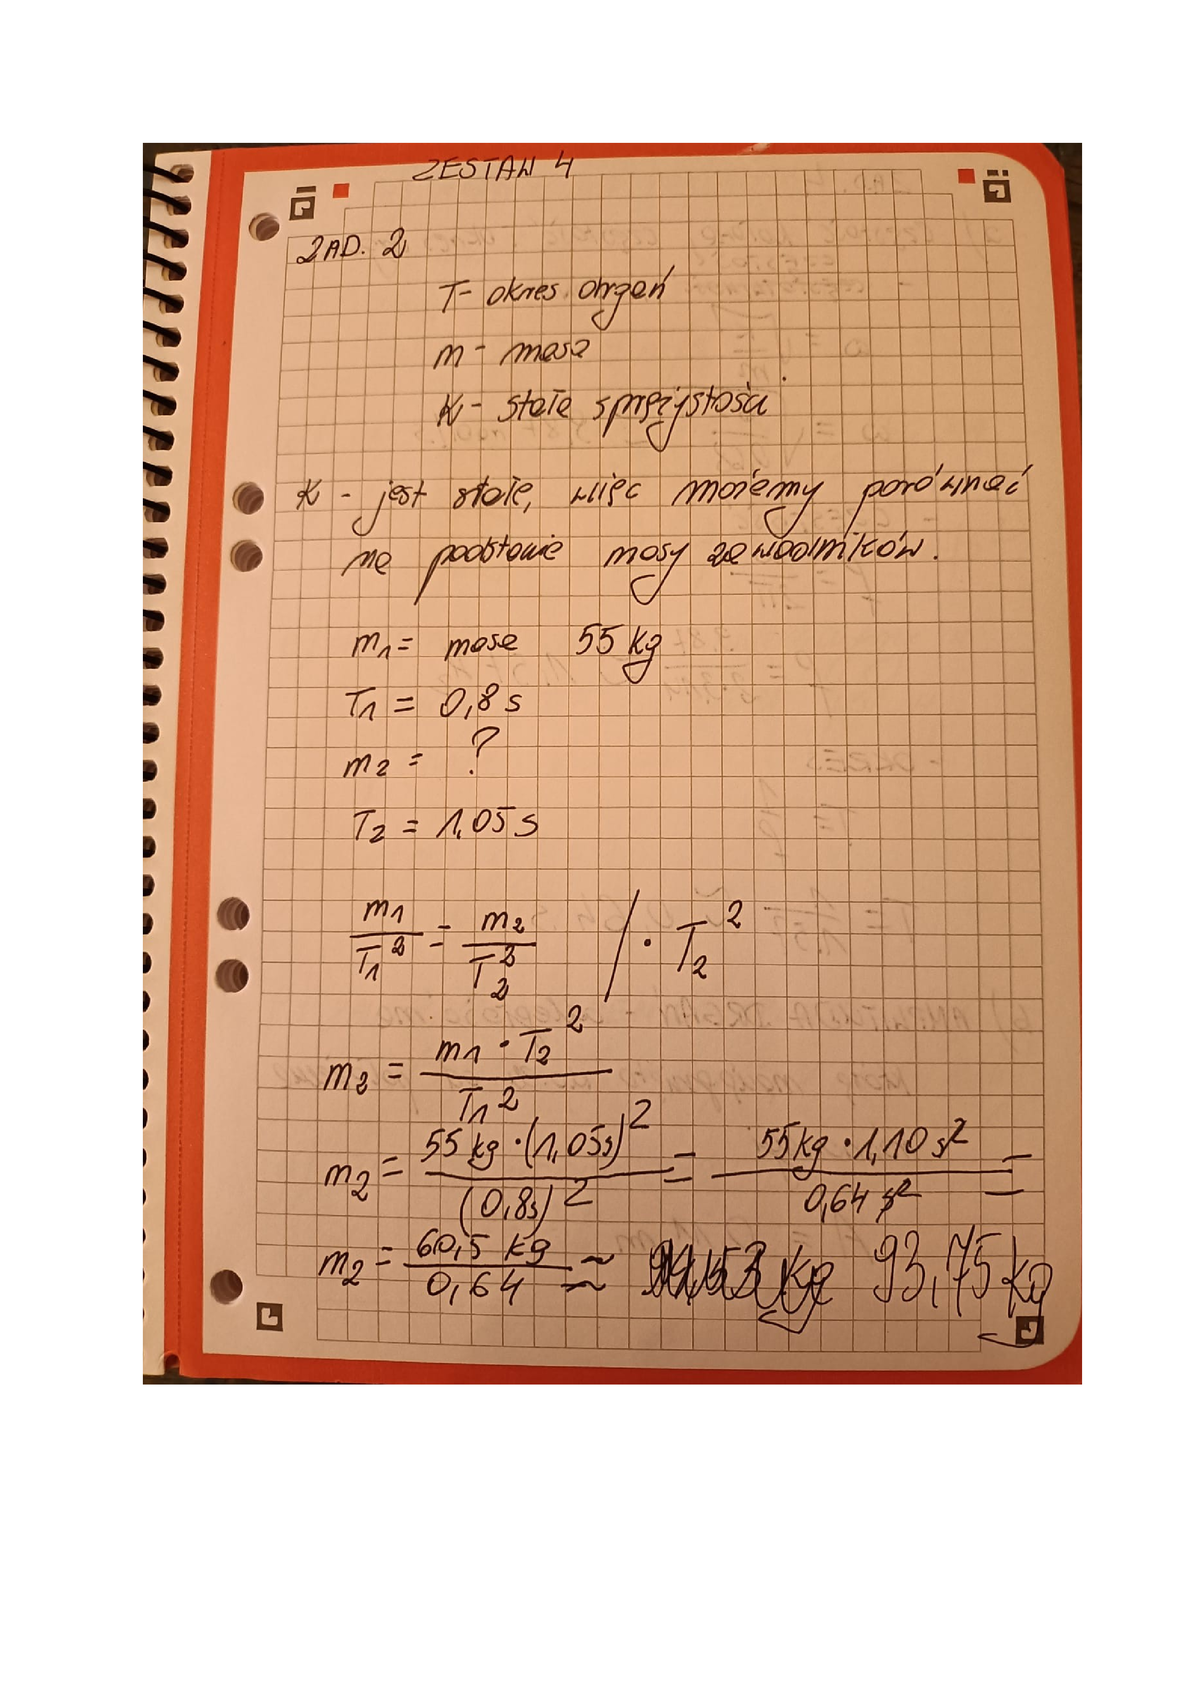 ZESTAW 4
ZAD. 2
T- okres drgań
m - masa
K - stała sprężystości
K - jest stałe, więc możemy porównać
na podstawie masy zawodników.
m1 = masa 55 kg
T1 = 0,8 s
m2 = ?
T2 = 1,05 s
m1/T1² = m2/T2² / · T2²
m2 = m1 · T2² / T1²
m2 = 55 kg · (1,05s)² / (0,8s)² = 55kg · 1,10 s² / 0,64 s² =
m2 = 60,5 kg / 0,64 ≈ 93,75 kg